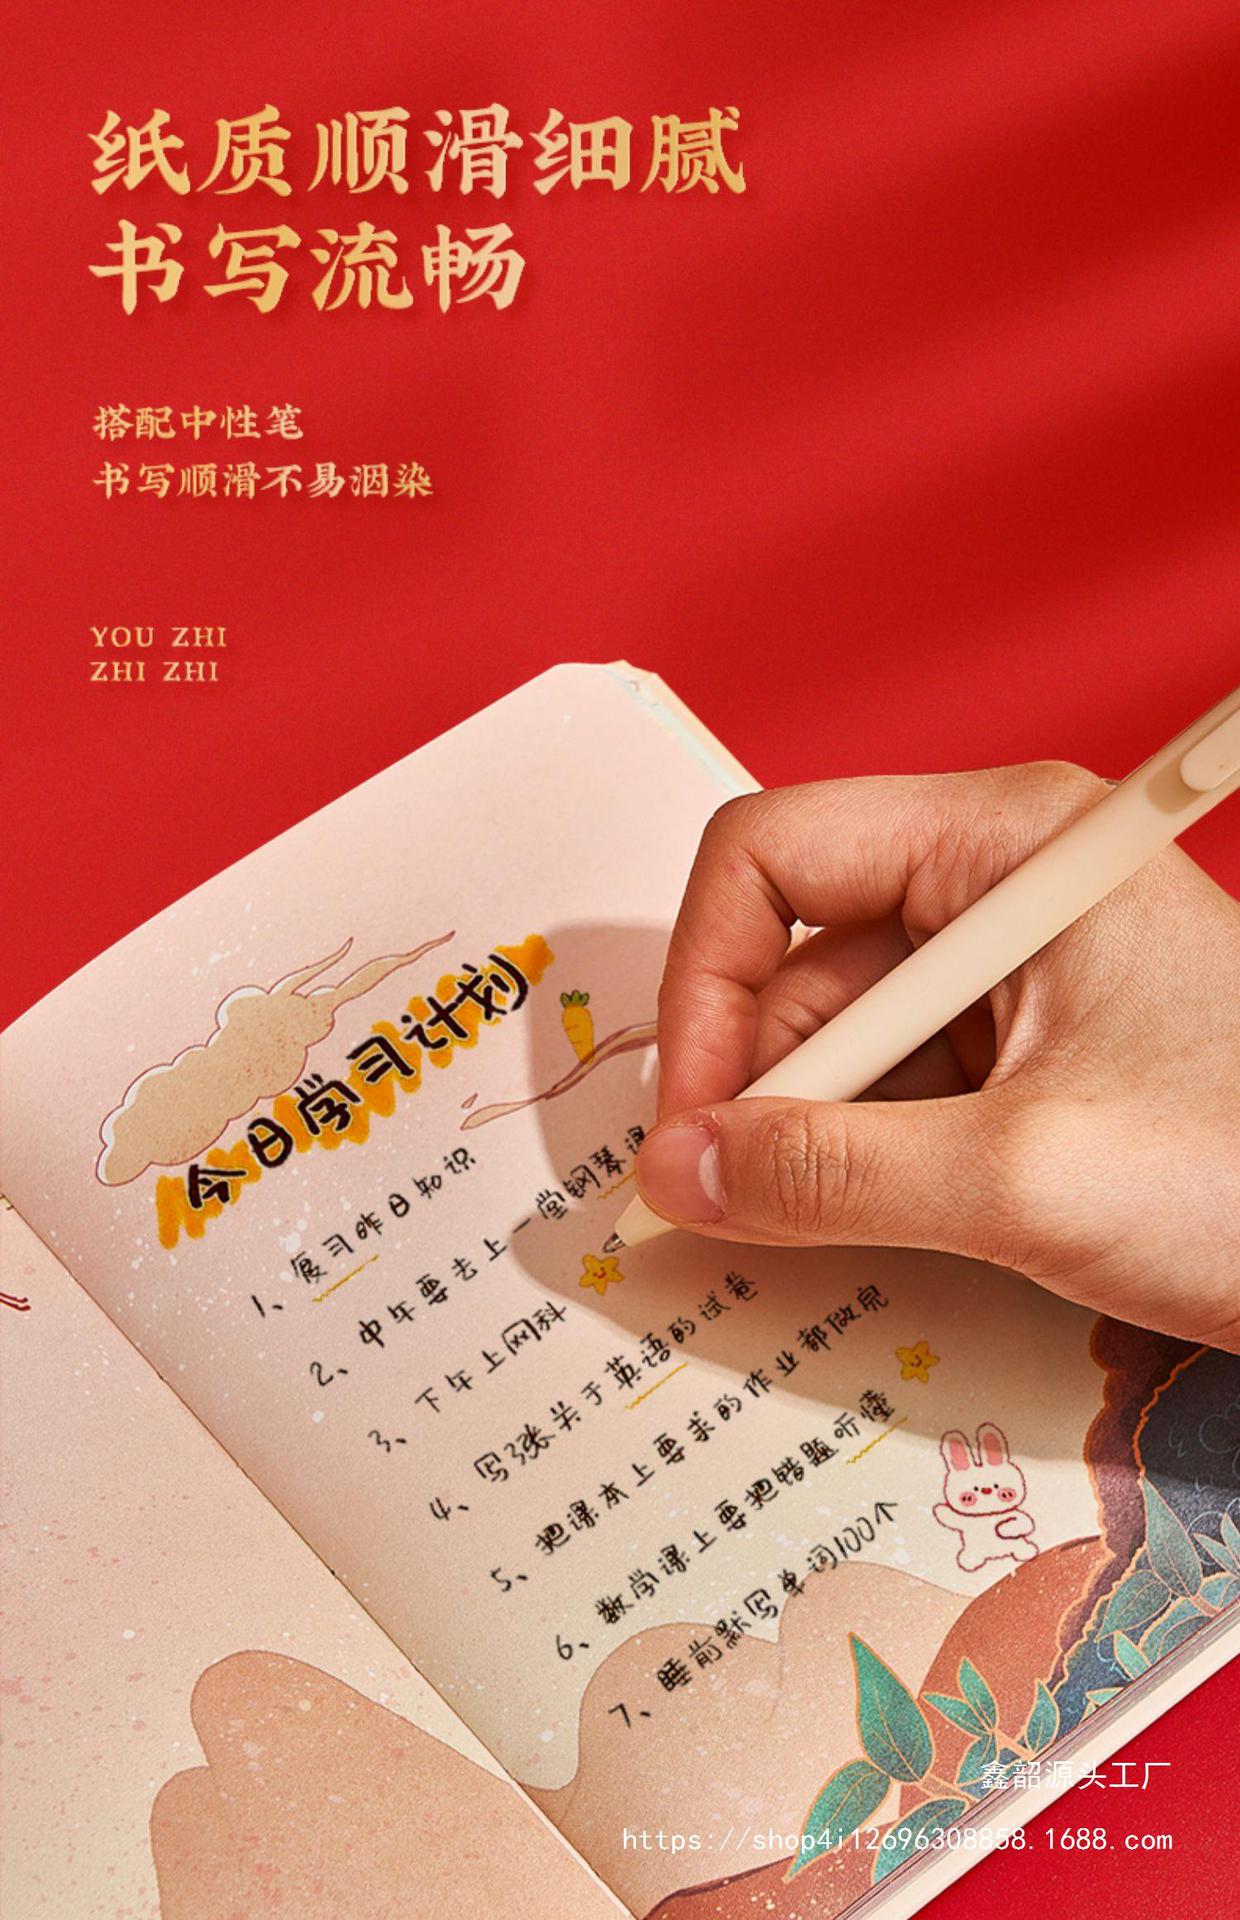 纸质顺滑细腻
书写流畅
搭配中性笔
书写顺滑不易洇染
YOU ZHI
ZHI ZHI
今日学习计划
1、复习昨日知识
2、中午要去上一堂钢琴课
3、下午上网科
4、写3张关于英语的试卷
5、把课本上要求的作业都做完
6、数学课上要把错题听懂
7、睡前默写单词100个
鑫韶源头工厂
https://shop4j12696308858.1688.com